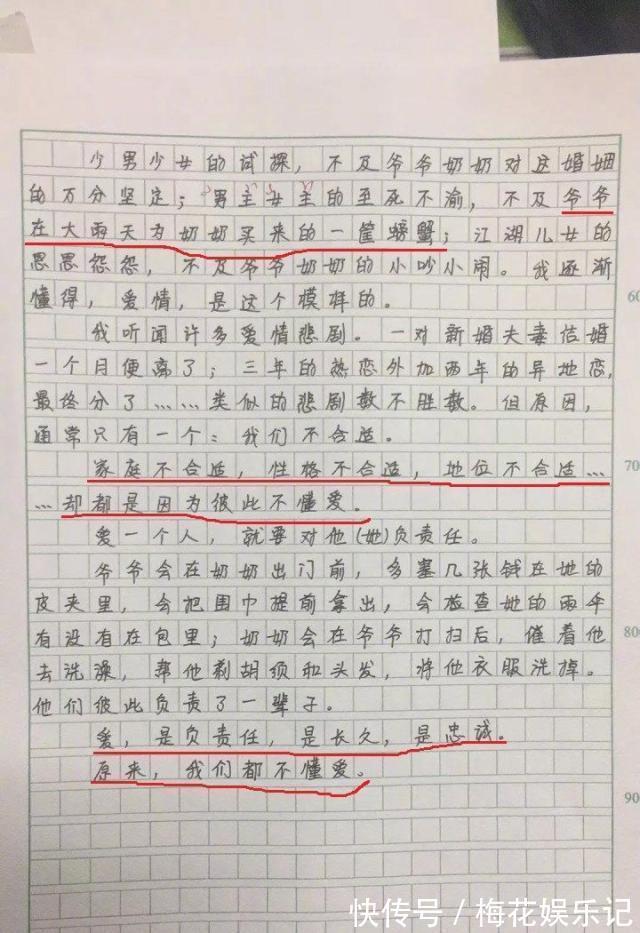 少男少女的试探，不及爷爷奶奶对这婚姻
的万分坚定；男主女主的至死不渝，不及爷爷
在大雨天为奶奶买来的一筐螃蟹；江湖儿女的
恩恩怨怨，不及爷爷奶奶的小吵小闹。我逐渐
懂得，爱情，是这个模样的。
60
我听闻许多爱情悲剧。一对新婚夫妻结婚
一个月便离了；三年的热恋外加两年的异地恋，
最终分了……类似的悲剧数不胜数。但原因，
通常只有一个：我们不合适。
家庭不合适，性格不合适，地位不合适…
70
…却都是因为彼此不懂爱。
爱一个人，就要对他(她)负责任。
爷爷会在奶奶出门前，多塞几张钱在她的
皮夹里，会把围巾提前拿出，会检查她的雨伞
有没有在包里；奶奶会在爷爷打扫后，催着他
80
去洗澡，帮他剃胡须和头发，将他衣服洗掉。
他们彼此负责了一辈子。
爱，是负责任，是长久，是忠诚。
原来，我们都不懂爱。
90
快传号／梅花娱乐记